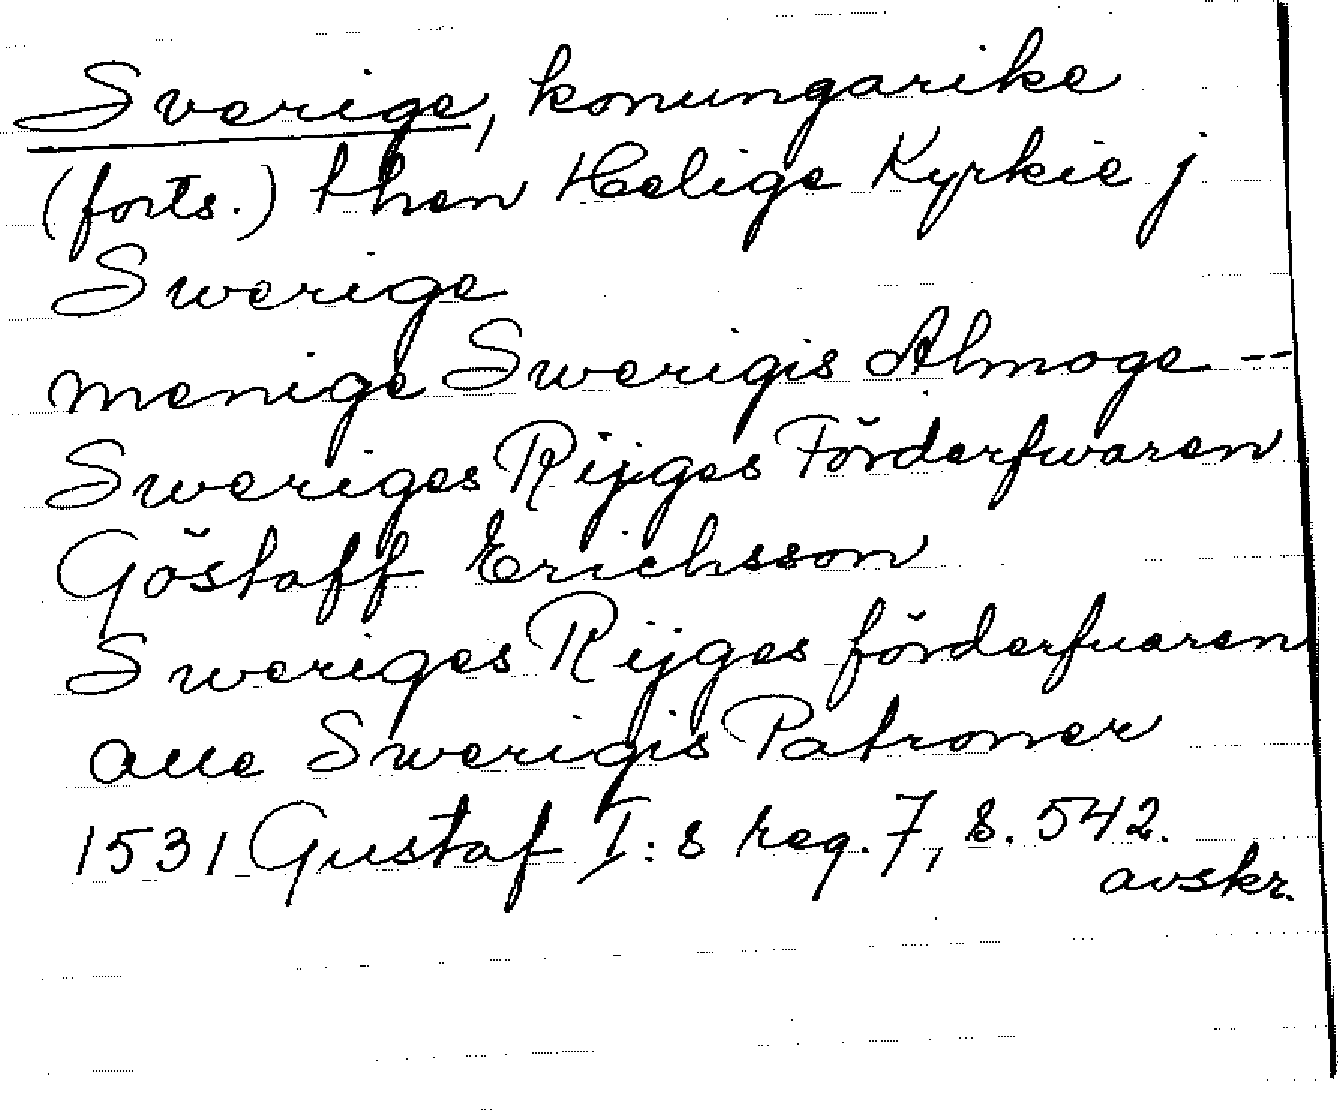 Sverige, konungarike
(forts.) then Helige Kyrkie j
Swerige
menige Swerigis Almoge --
Sweriges Rijges Förderfwaren
Göstaff Erichsson
Sweriges Rijges förderfuaren
alle Swerigis Patroner
1531 Gustaf I:s reg. 7, s. 542.
avskr.